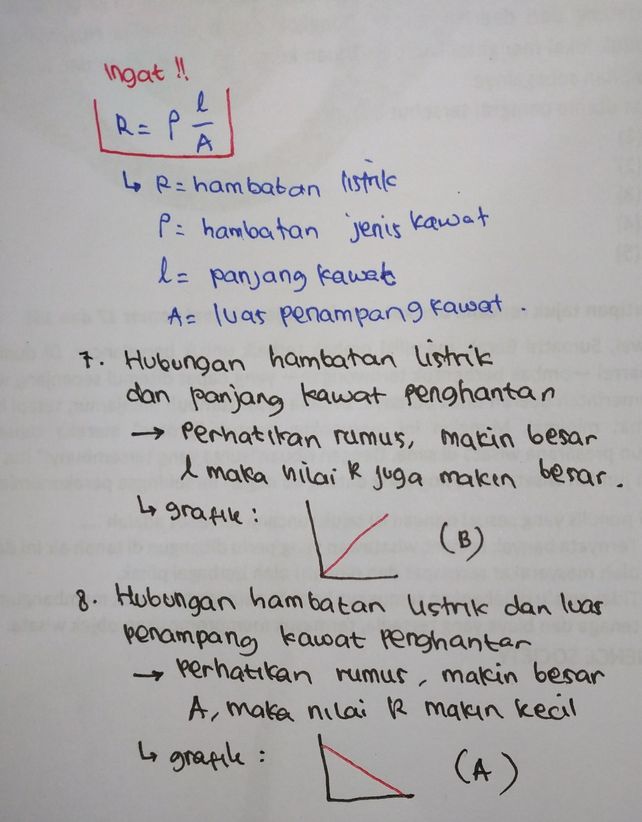 Ingat !!
R = ρ l/A
↳ R = hambatan listrik
ρ = hambatan jenis kawat
l = panjang kawat
A = luas penampang kawat.
7. Hubungan hambatan listrik
dan panjang kawat penghantar
→ Perhatikan rumus, makin besar
l maka nilai R juga makin besar.
↳ grafik : (B)
8. Hubungan hambatan listrik dan luas
penampang kawat penghantar
→ Perhatikan rumus, makin besar
A, maka nilai R makin kecil
↳ grafik : (A)